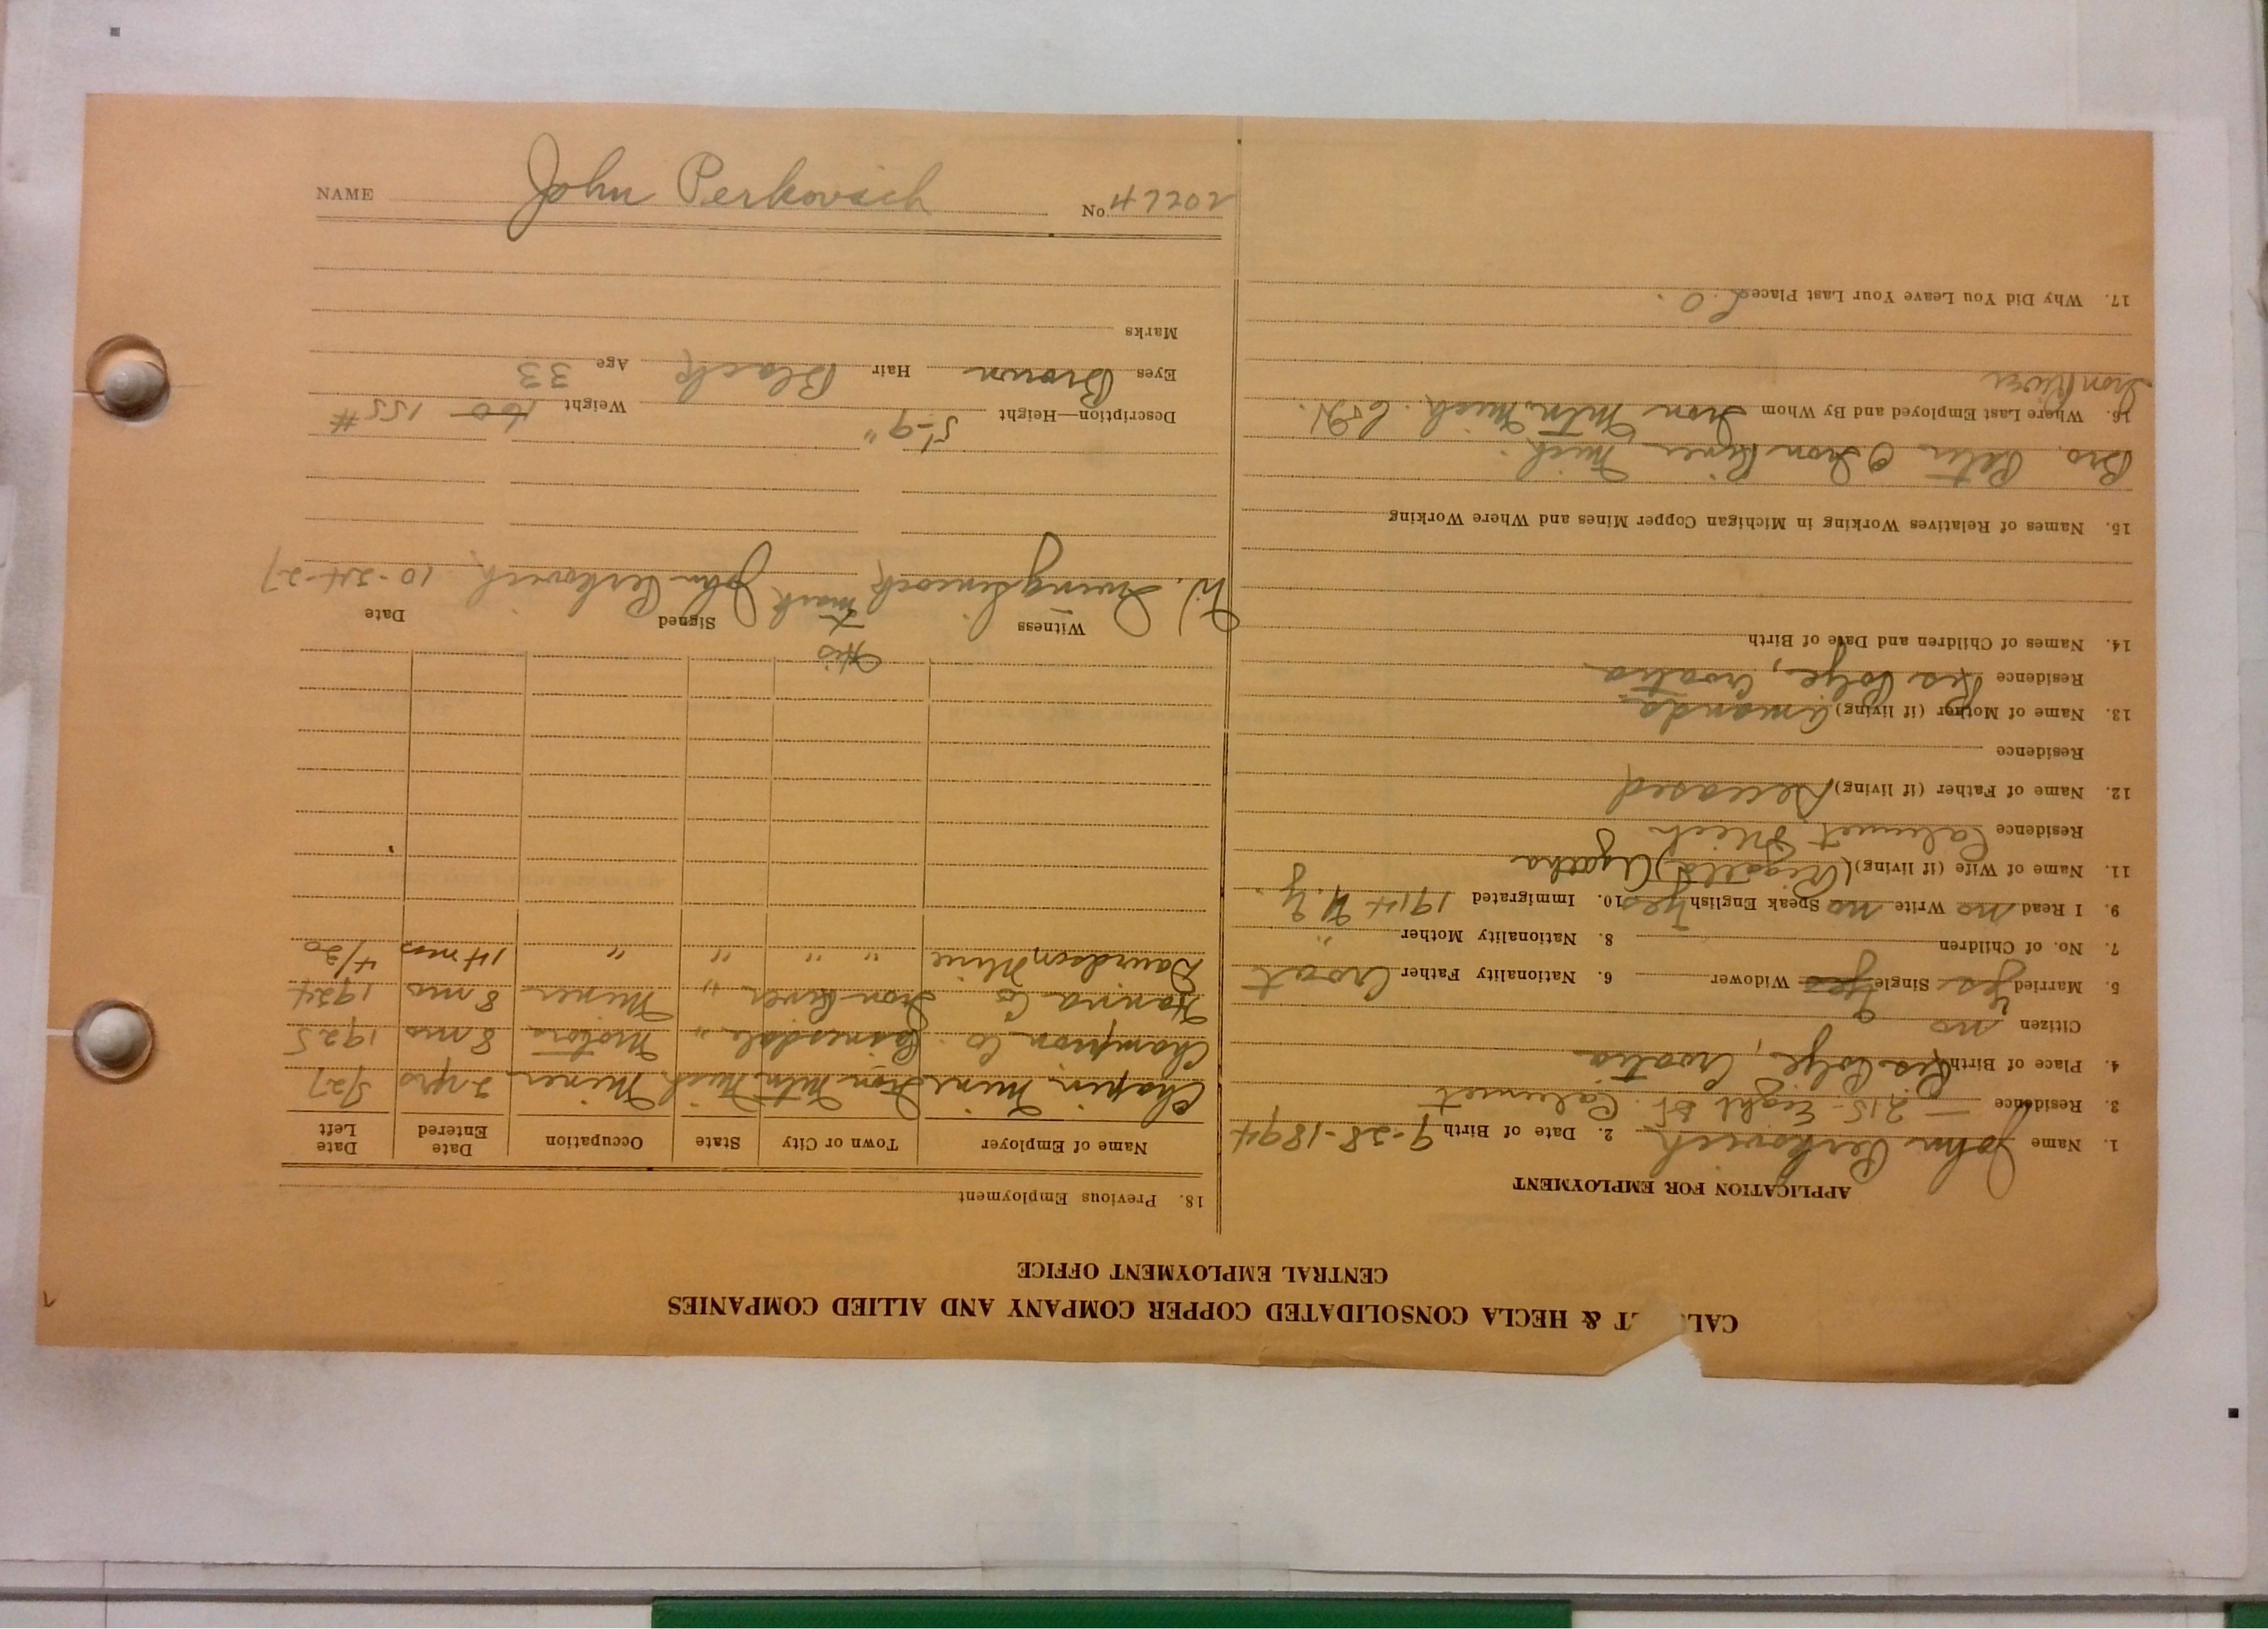 CAL LT & HECLA CONSOLIDATED COPPER COMPANY AND ALLIED COMPANIES
CENTRAL EMPLOYMENT OFFICE
APPLICATION FOR EMPLOYMENT
1. Name John Perkovich 2. Date of Birth 9-28-1894
3. Residence 215- Eight St. Calumet
4. Place of Birth Res Polje, Croatia
Citizen no
5. Married yes Single yes Widower 6. Nationality Father Croat
7. No. of Children 8. Nationality Mother "
9. I Read no Write no Speak English yes 10. Immigrated 1914 N.Y.
11. Name of Wife (if living) Agatha
Residence Calumet Mich
12. Name of Father (if living) Deceased
Residence
13. Name of Mother (if living) Amanda
Residence Res Polje, Croatia
14. Names of Children and Date of Birth
15. Names of Relatives Working in Michigan Copper Mines and Where Working
Bro. Peter Iron River Mich.
16. Where Last Employed and By Whom Iron Mtn. Mich.
Iron River
17. Why Did You Leave Your Last Place
18. Previous Employment
Name of Employer Town or City State Occupation Date Entered Date Left
Chapin Mine Iron Mtn. Mich Miner 2 yrs 5/27
Champion Co. Painesdale " Motors 8 mo 1925
Hanna Co Iron River " Miner 8 mo 1924
Davidson Mine " " " " 14 mos 4/20
Witness Signed Date
His
W. Irving Lincock x mark John Perkovich 10-24-27
Description—Height 5'-9" Weight 160 155#
Eyes Brown Hair Black Age 33
Marks
NAME John Perkovich No. 20224